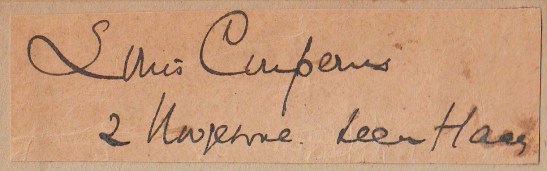 Louis Couperus
2 Hoogewal. Den Haag